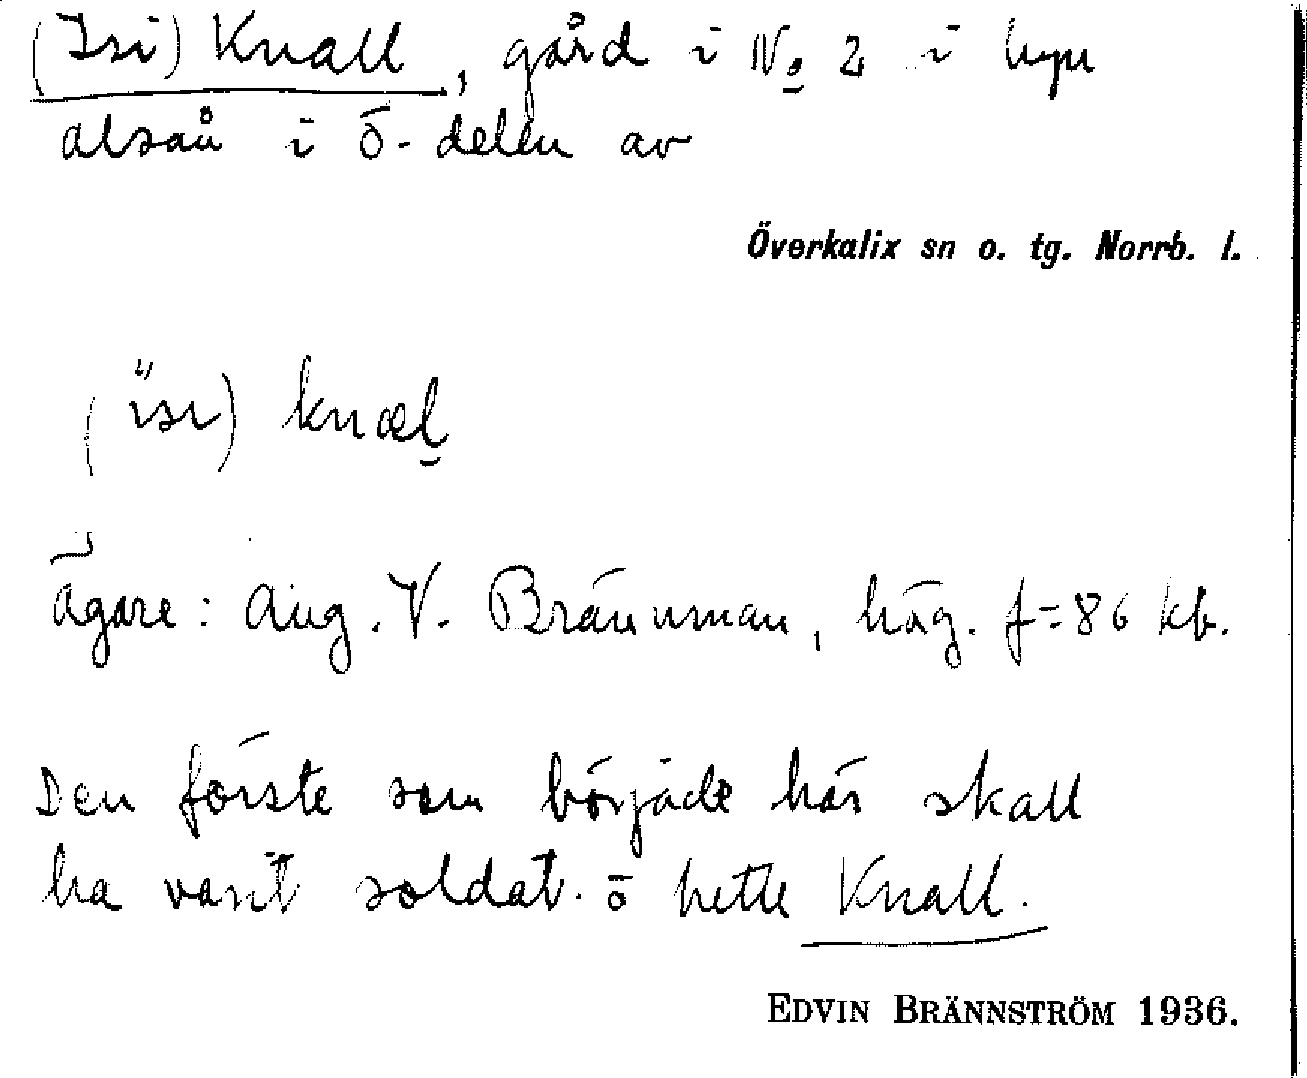 (Isi) Knall, gård i No 2 i byn
alsån i ö-delen av
Överkalix sn o. tg. Norrb. l.
(isi) knæl
ägare: Aug. V. Brännman, häg. f=86 kb.
Den förste som började här skall
ha varit soldat o hette Knall.
EDVIN BRÄNNSTRÖM 1936.